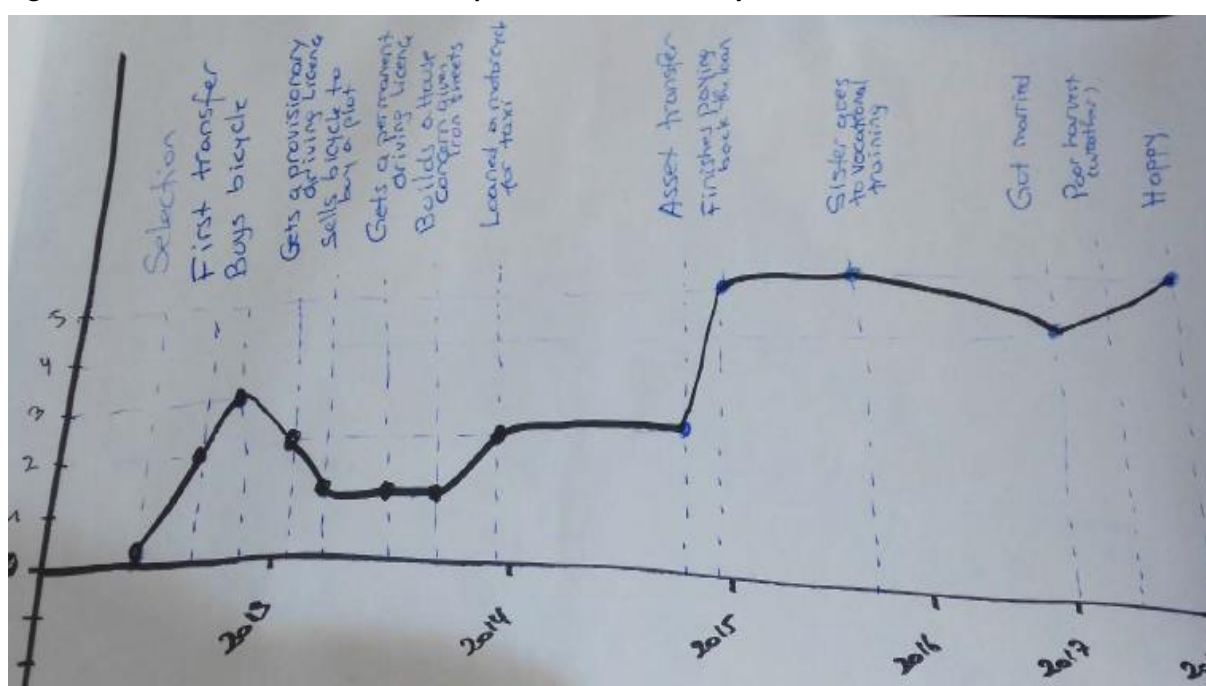 Selection
First transfer
Buys bicycle
Gets a provisionary
driving licence
Sells bicycle to
buy a plot
Gets a permanent
driving licence
Builds a house
Concern gives
iron sheets
Loaned a motorcycle
for taxi
Asset transfer
Finishes paying
back the loan
Sister goes
to vocational
training
Got married
Poor harvest
(weather)
Happy
5
4
3
2
1
0
2013
2014
2015
2016
2017